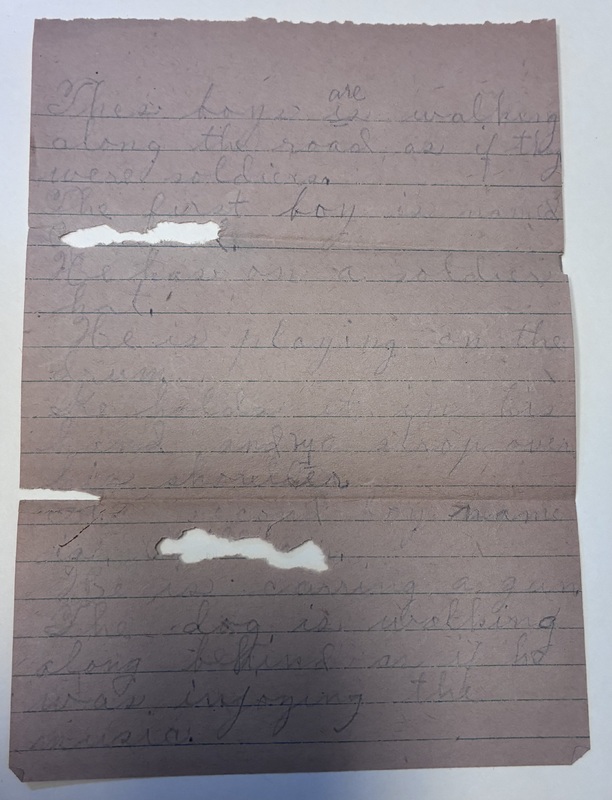 Thes boys is are walking
along the road as if thy
were soldiers.
The first boy is named
He has on a soldier
hat.
He is playing on the
drum.
He holds it in his
hand and a strap over
his shoulder.
The second boy name
is
He is carring a gun
The dog is walking
along behind as if he
was injoying the
music.